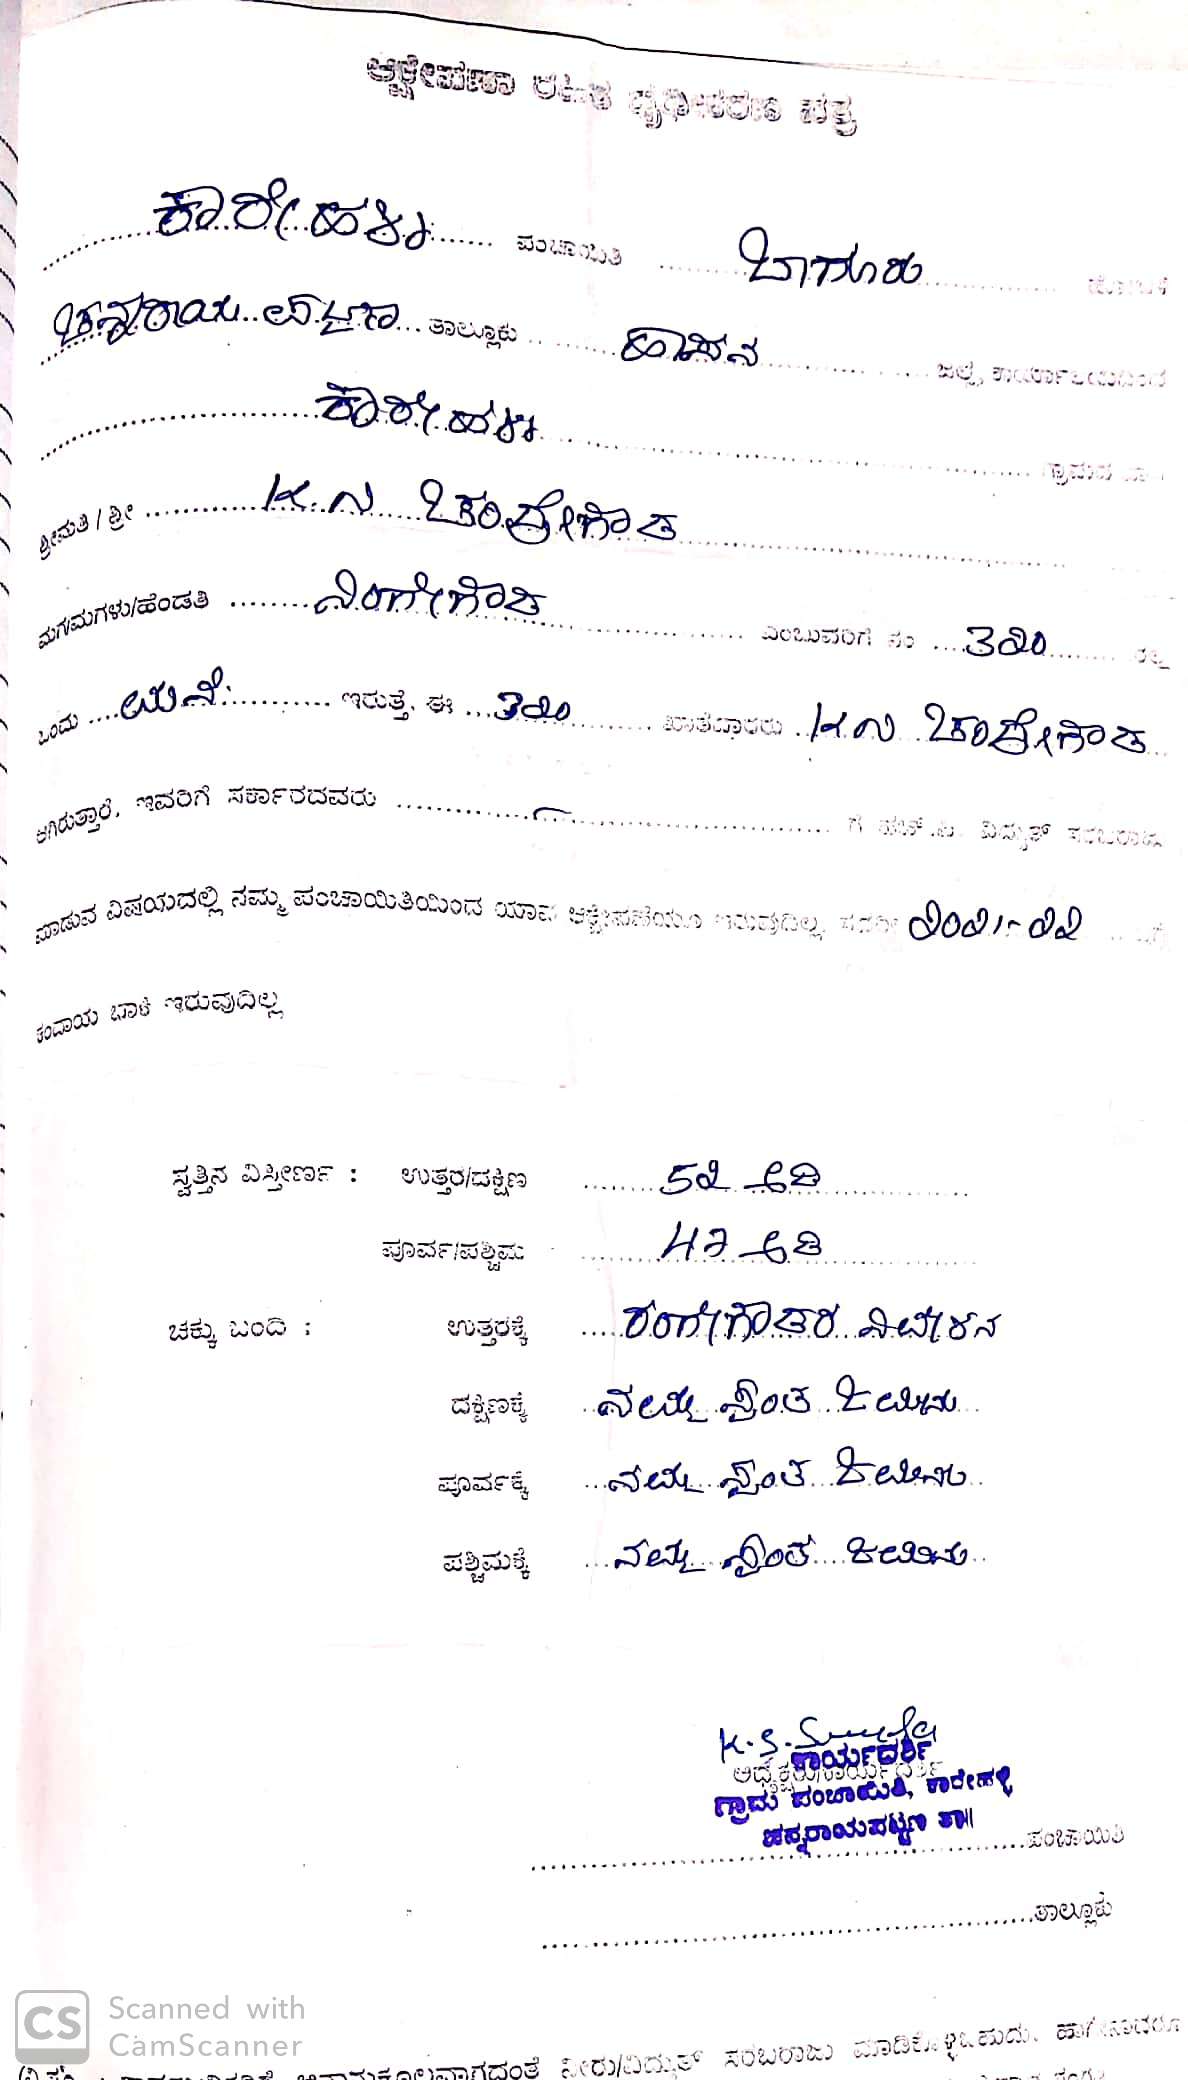 ಆಕ್ಷೇಪಣಾ ರಹಿತ ದೃಢೀಕರಣ ಪತ್ರ
ಕಾರೇಹಳ್ಳಿ ಪಂಚಾಯಿತಿ ಬಾಗೂರು ಹೋಬಳಿ
ಚನ್ನರಾಯಪಟ್ಟಣ ತಾಲ್ಲೂಕು ಹಾಸನ ಜಿಲ್ಲೆ, ಕಾರ್ಯಾಲಯದಿಂದ
ಕಾರೇಹಳ್ಳಿ ಗ್ರಾಮದ
ಶ್ರೀಮತಿ / ಶ್ರೀ K.N ಚಂದ್ರೇಗೌಡ
ಮಗ/ಮಗಳು/ಹೆಂಡತಿ ನಿಂಗೇಗೌಡ ಎಂಬುವರಿಗೆ ನಂ 3೨೦ ರಲ್ಲಿ
ಒಂದು ಮನೆ ಇರುತ್ತೆ. ಈ 3೨೦ ಖಾತೆದಾರರು K.N ಚಂದ್ರೇಗೌಡ
ಆಗಿರುತ್ತಾರೆ. ಇವರಿಗೆ ಸರ್ಕಾರದವರು ಗೆ ಹೆಚ್.ಪಿ. ವಿದ್ಯುತ್ ಸರಬರಾಜು
ಮಾಡುವ ವಿಷಯದಲ್ಲಿ ನಮ್ಮ ಪಂಚಾಯಿತಿಯಿಂದ ಯಾವ ಆಕ್ಷೇಪಣೆಯೂ ಇರುವುದಿಲ್ಲ. ಸದರಿ ೨೦೨1-೨೨
ಕಂದಾಯ ಬಾಕಿ ಇರುವುದಿಲ್ಲ
ಸ್ವತ್ತಿನ ವಿಸ್ತೀರ್ಣ : ಉತ್ತರ/ದಕ್ಷಿಣ 5೨ ಅಡಿ
ಪೂರ್ವ/ಪಶ್ಚಿಮ 47 ಅಡಿ
ಚಕ್ಕು ಬಂದಿ : ಉತ್ತರಕ್ಕೆ ರಂಗೇಗೌಡರ ನಿವೇಶನ
ದಕ್ಷಿಣಕ್ಕೆ ನಮ್ಮ ಸ್ವಂತ ಜಮೀನು
ಪೂರ್ವಕ್ಕೆ ನಮ್ಮ ಸ್ವಂತ ಜಮೀನು
ಪಶ್ಚಿಮಕ್ಕೆ ನಮ್ಮ ಸ್ವಂತ ಜಮೀನು
K.S.
ಕಾರ್ಯದರ್ಶಿ
ಅಧ್ಯಕ್ಷರು/ಕಾರ್ಯದರ್ಶಿ
ಗ್ರಾಮ ಪಂಚಾಯಿತಿ, ಕಾರೇಹಳ್ಳಿ
ಚನ್ನರಾಯಪಟ್ಟಣ ತಾ॥
ಪಂಚಾಯಿತಿ
ತಾಲ್ಲೂಕು
CS Scanned with
CamScanner
ನೀರು/ವಿದ್ಯುತ್ ಸರಬರಾಜು ಮಾಡಿಕೊಳ್ಳಬಹುದು.